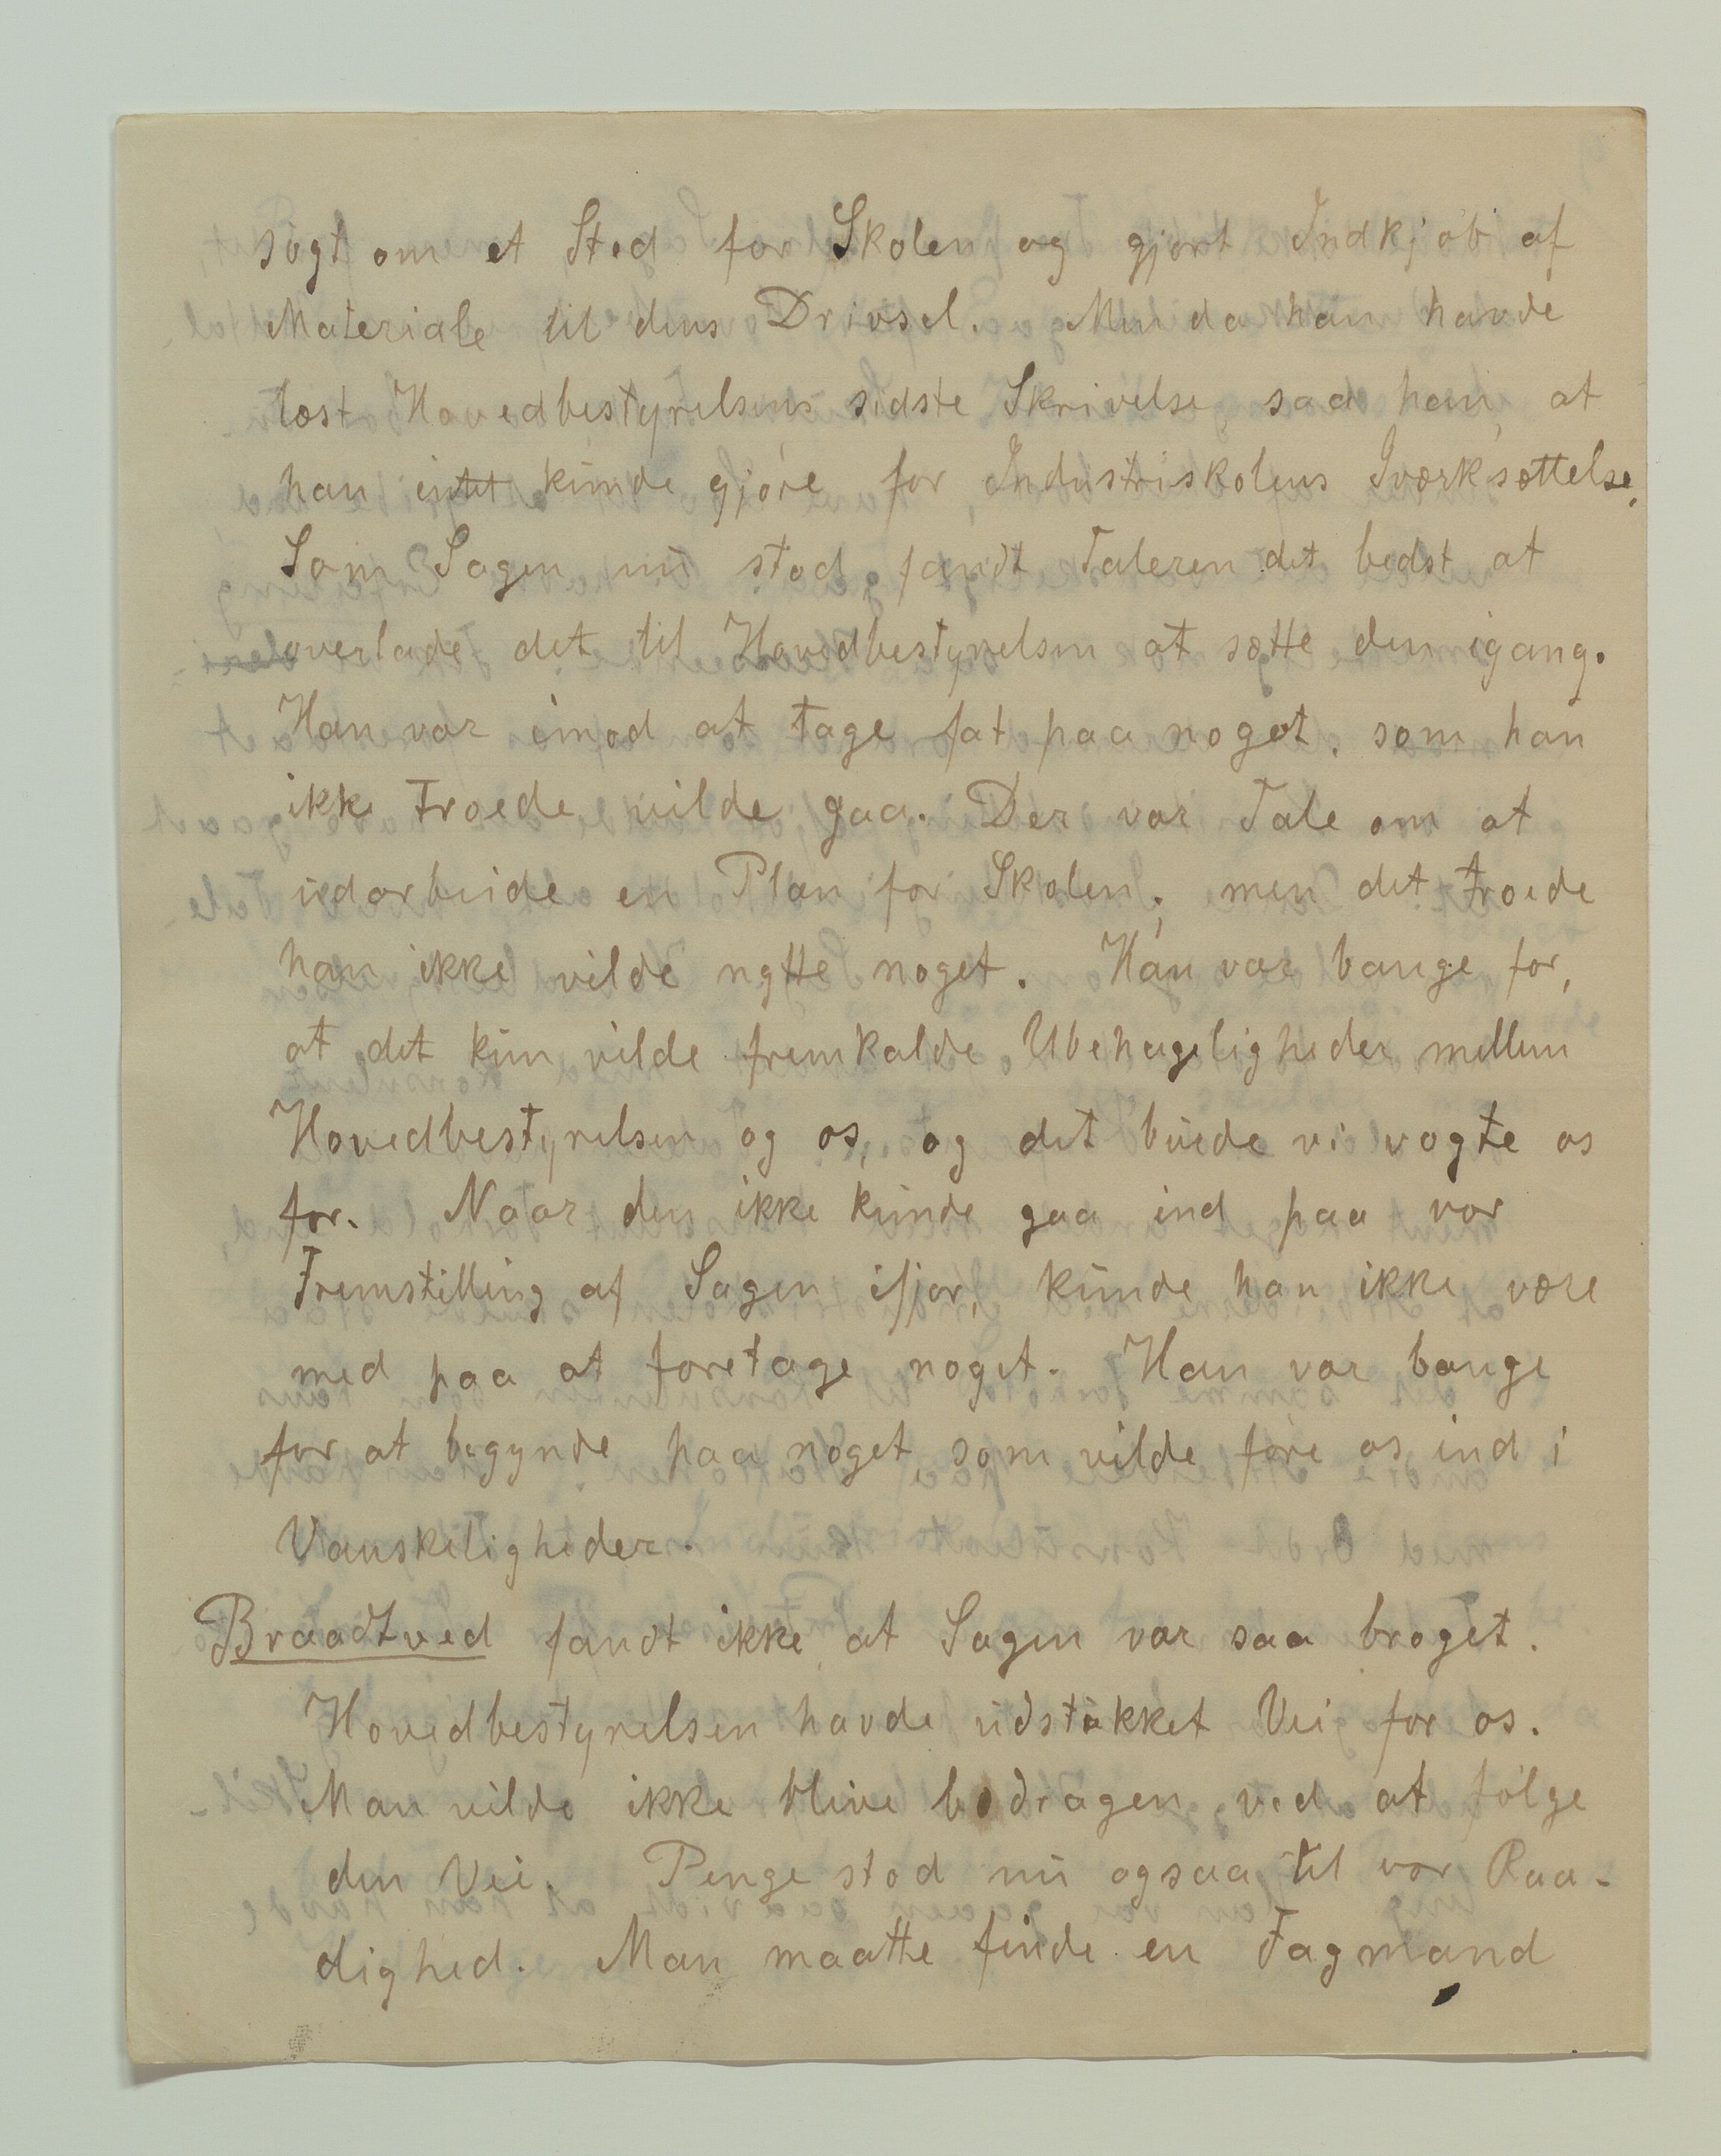 søgt om et Sted for Skolen og gjort Indkjøb af
Materiale til dens Drivsel. Men da han havde
læst Hovedbestyrelsens sidste Skrivelse saa han, at
han intet kunde gjøre for Industriskolens Iværksættelse.
Som Sagen nu stod, fandt Taleren det bedst at
overlade det til Hovedbestyrelsen at sætte den igang.
Han var imod at tage fat paa noget, som han
ikke troede vilde gaa. Der var Tale om at
udarbeide en Plan for Skolen; men det troede
han ikke vilde nytte noget. Han var bange for,
at det kun vilde fremkalde Ubehageligheder mellem
Hovedbestyrelsen og os, og det burde vi vogte os
for. Naar den ikke kunde gaa ind paa vor
Fremstilling af Sagen ifjor, kunde han ikke være
med paa at foretage noget. Han var bange
for at begynde paa noget, som vilde føre os ind i
Vanskeligheder.
Braadtved fandt ikke, at Sagen var saa broget.
Hovedbestyrelsen havde udstukket Vei for os.
Man vilde ikke blive bedragen ved at følge
den Vei. Penge stod nu ogsaa til vor Raa-
dighed. Man maatte finde en Fagmand